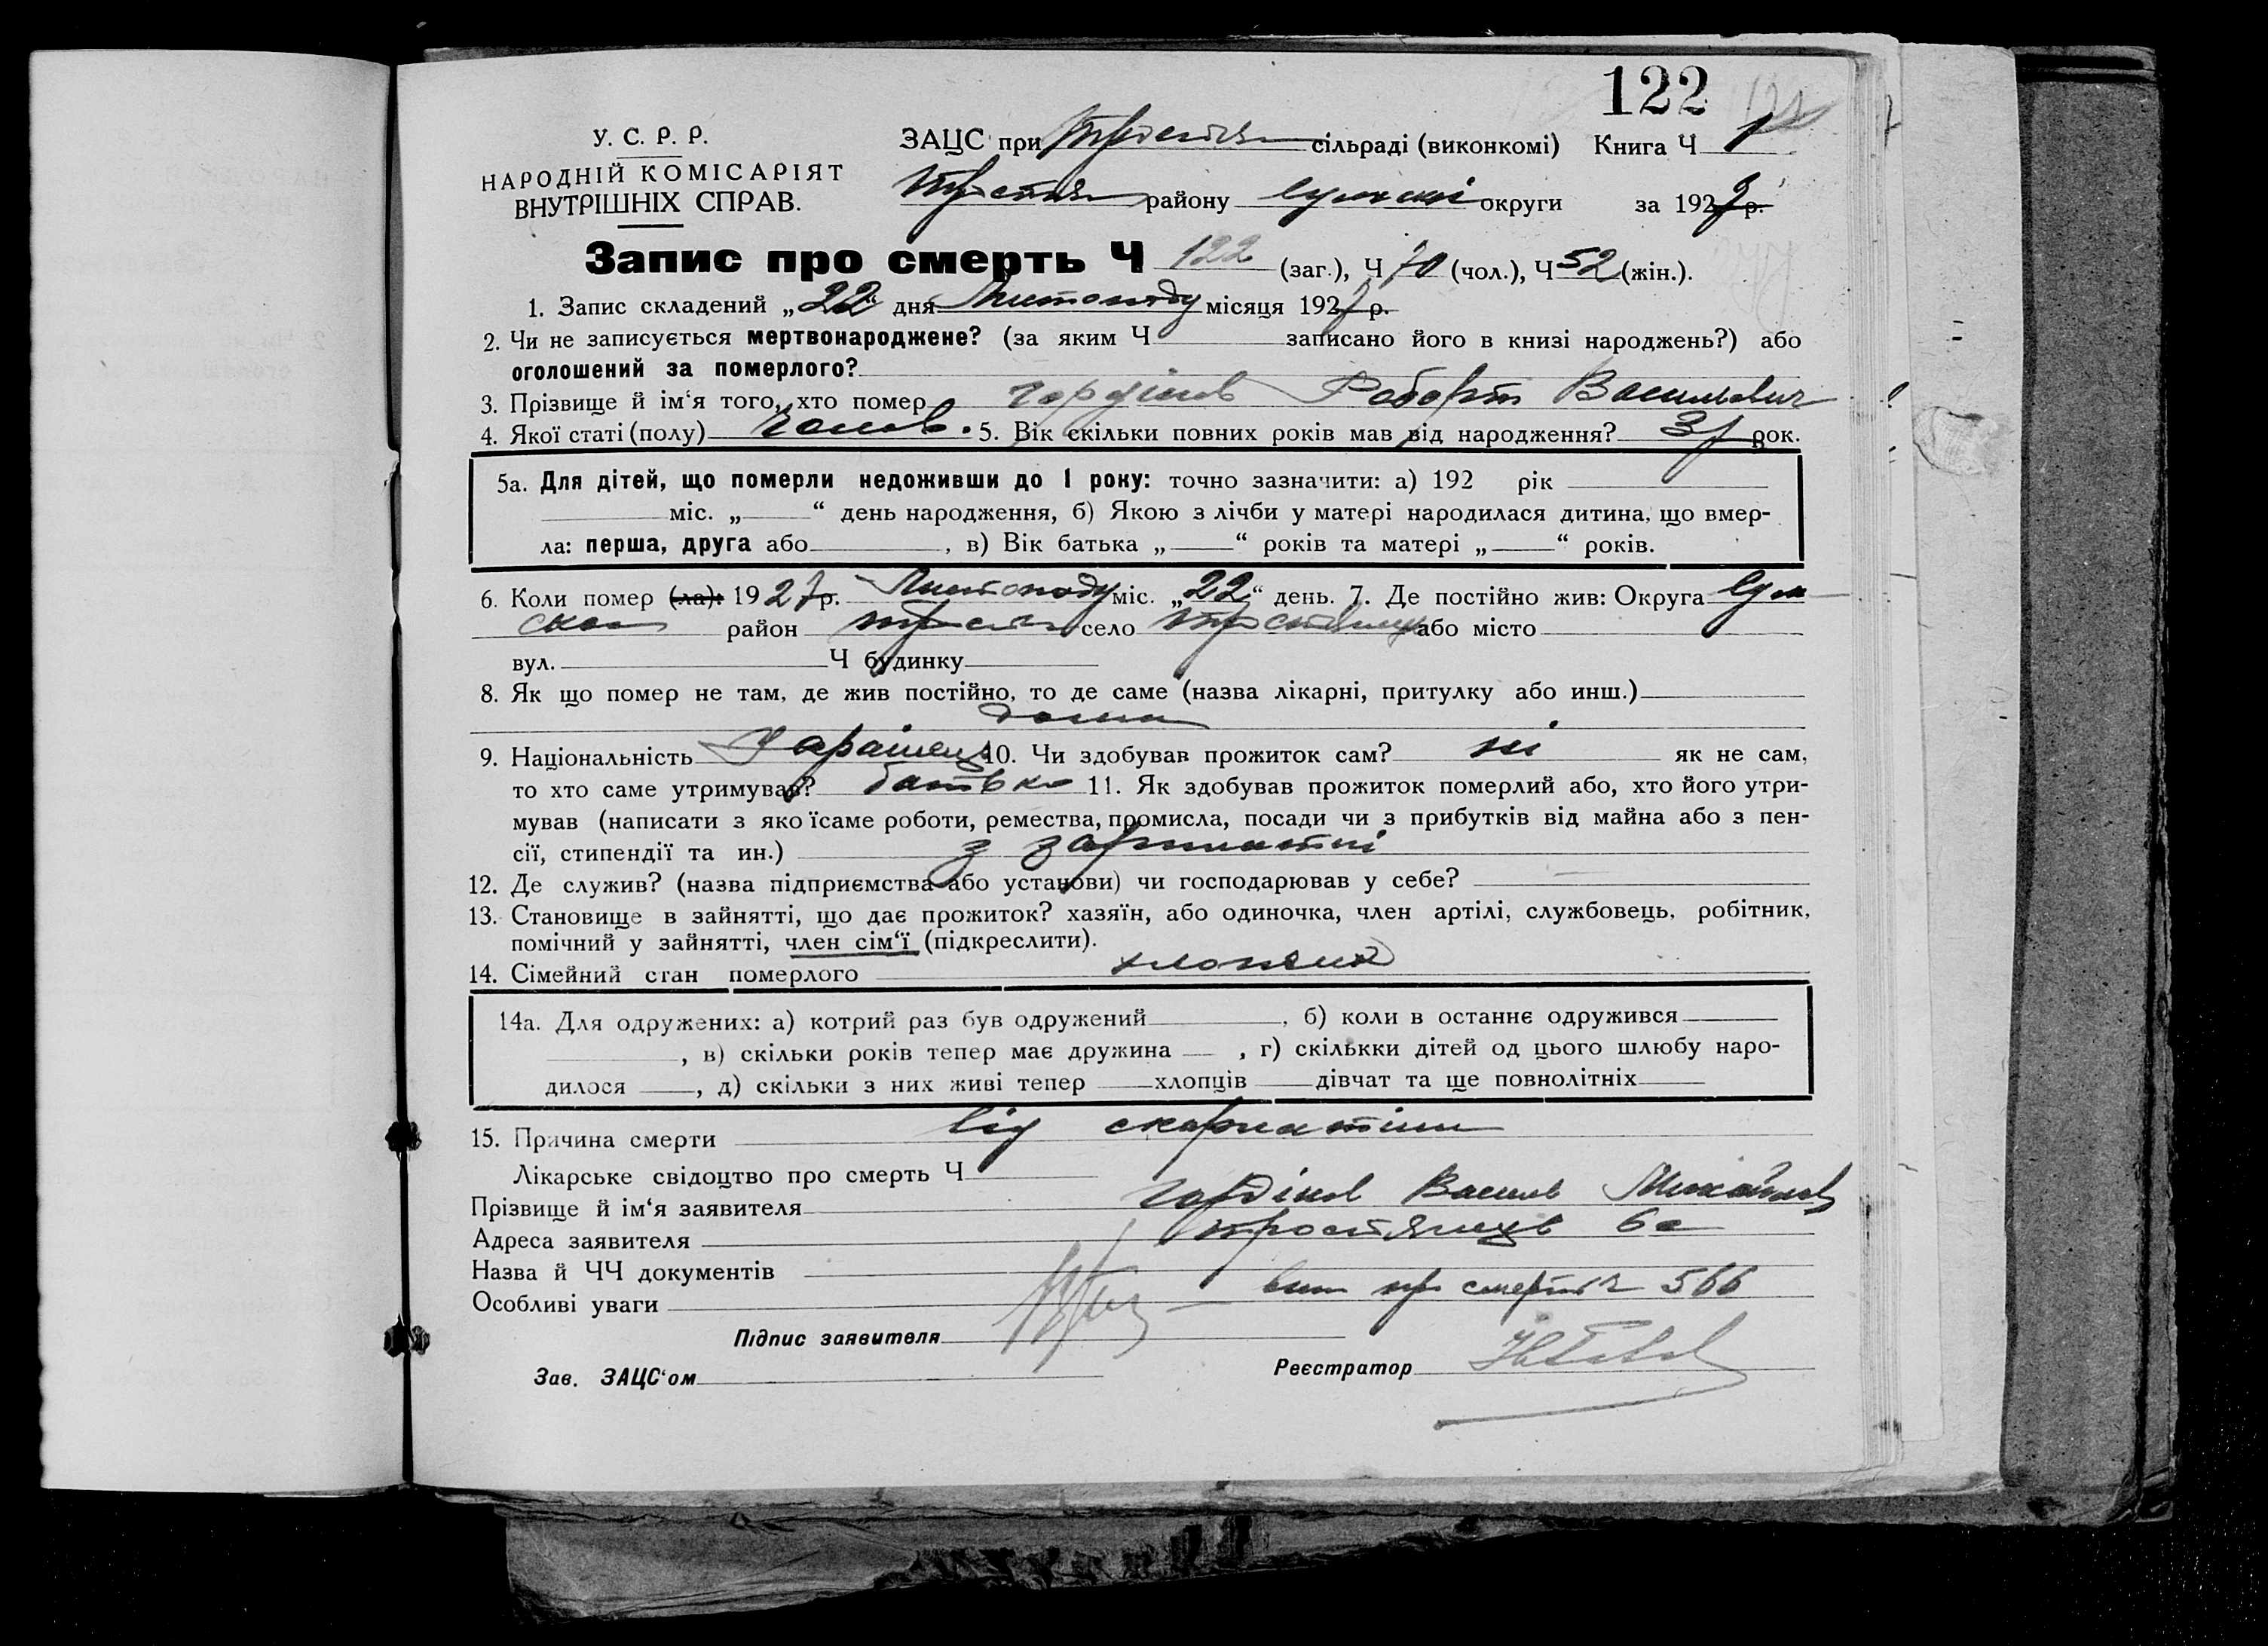 122
У. С. Р. Р.
НАРОДНІЙ КОМІСАРІЯТ
ВНУТРІШНІХ СПРАВ.
ЗАЦС при сільраді (виконкомі) Книга Ч 1
району Сумскої округи за 1927 р.
Запис про смерть Ч 122 (заг.), Ч 70 (чол.), Ч 52 (жін.).
1. Запис складений „22“ дня Листопаду місяця 1927 р.
2. Чи не записується мертвонароджене? (за яким Ч записано його в книзі народжень?) або
оголошений за померлого?
3. Прізвище й ім‘я того, хто помер Гордінов Роборт Васильович
4. Якої статі (полу) чолов. 5. Вік скільки повних років мав від народження? 3 р рок.
5а. Для дітей, що померли недоживши до 1 року: точно зазначити: а) 192 рік
міс. „ “ день народження, б) Якою з лічби у матері народилася дитина, що вмер-
ла: перша, друга або , в) Вік батька „ “ років та матері „ “ років.
6. Коли помер (ла): 1927 р. Листопаду міс. „22“ день. 7. Де постійно жив: Округа Сум
ская район село Тростянець або місто
вул. Ч будинку
8. Як що помер не там, де жив постійно, то де саме (назва лікарні, притулку або инш.)
дома
9. Національність Українець 10. Чи здобував прожиток сам? ні як не сам,
то хто саме утримував? батько 11. Як здобував прожиток померлий або, хто його утри-
мував (написати з якоїсаме роботи, ремества, промисла, посади чи з прибутків від майна або з пен-
сії, стипендії та ин.) з зарплатні
12. Де служив? (назва підприємства або установи) чи господарював у себе?
13. Становище в зайнятті, що дає прожиток? хазяїн, або одиночка, член артілі, службовець, робітник,
помічний у зайнятті, член сім‘ї (підкреслити).
14. Сімейний стан померлого хлопець
14а. Для одружених: а) котрий раз був одружений , б) коли в останнє одружився
, в) скільки років тепер має дружина , г) скількки дітей од цього шлюбу наро-
дилося , д) скільки з них живі тепер хлопців дівчат та ще повнолітніх
15. Причина смерти від скарлатіни
Лікарське свідоцтво про смерть Ч
Прізвище й ім‘я заявителя Гордінов Василь Михайлов
Адреса заявителя Тростянець
Назва й ЧЧ документів
Особливі уваги вип про смерть 566
Підпис заявителя
Зав. ЗАЦС‘ом Реєстратор